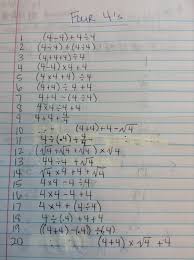 Four 4's
1 (4-4)+4÷4
2 (4÷4)+(4÷4)
3 (4+4+4)÷4
4 (4-4)×4+4
5 (4×4+4)÷4
6 (4+4)÷4+4
7 4+4-(4÷4)
8 4×4÷4+4
9 4+4+
10 (4+4)+4-√4
11
12 (√4+√4+√4)×√4
13 44÷4+√4
14 √4×4+4+√4
15 4×4-4÷4
16 4×4-4+4
17 4×4+(4÷4)
18 4÷(.4)+4+4
19 ((4+4)-(.4))÷(.4)
20 (4+4)×√4+4